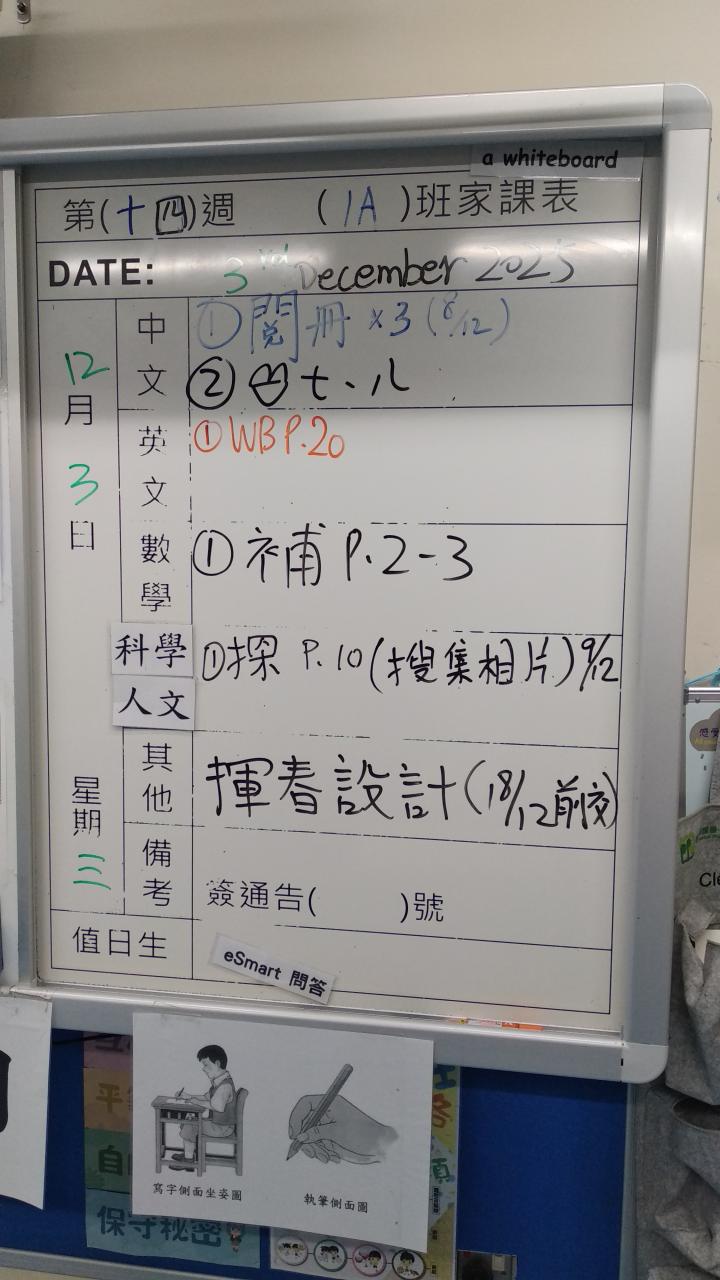 a whiteboard
第(十四)週 (1A)班家課表
DATE: 3rd December 2025
12月3日 星期三
中文 ①閱冊x3(8/12)
② 七、八
英文 ①WB P.20
數學 ①補 P.2-3
科學 人文 ①探 P.10(搜集相片)9/12
其他 揮春設計(18/12前交)
備考 簽通告( )號
值日生
eSmart 問答
寫字側面坐姿圖
執筆側面圖
保守秘密